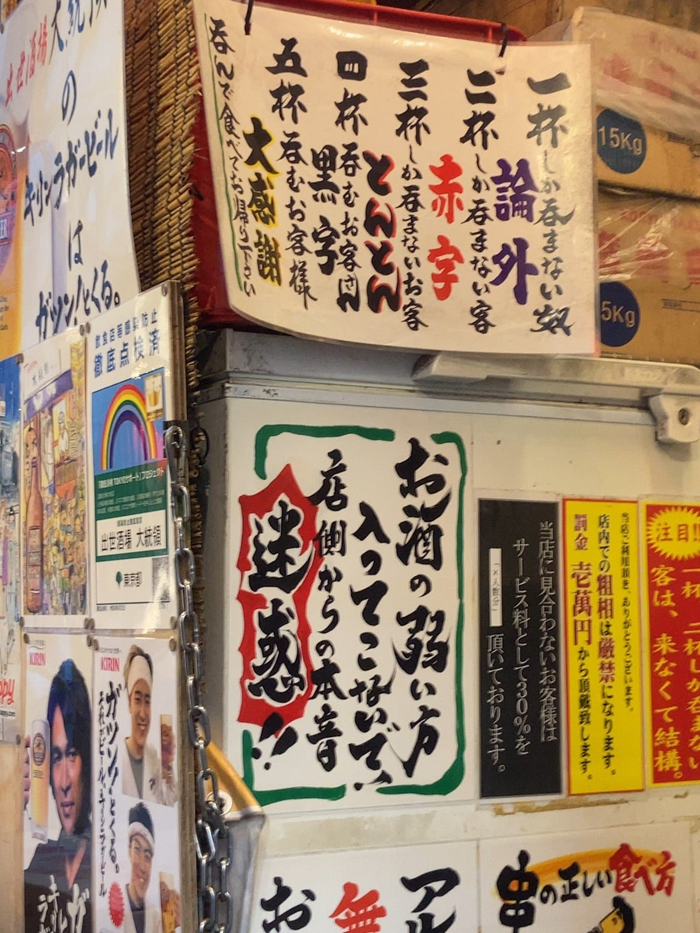 一杯しか呑まない奴
論外
二杯しか呑まない客
赤字
三杯しか呑まないお客
とんとん
四杯呑むお客さん
黒字
五杯呑むお客様
大感謝
呑んで食べてお帰り下さい
15Kg
5Kg
出世酒場 大統領
の
キリンラガービール
は
ガツン!とくる。
徹底点検済
出世酒場 大統領
東京都
お酒の弱い方
入ってこないで!
店側からの本音
迷惑!!
当店に見合わないお客様は
サービス料として30%を
頂いております。
当店ご利用頂き、ありがとうございます。
店内での粗相は厳禁になります。
罰金 壱萬円から頂戴致します。
注目!!
客は、来なくて結構。
KIRIN
KIRIN
ガツン!とくる。
アル
無
お
串の正しい食べ方